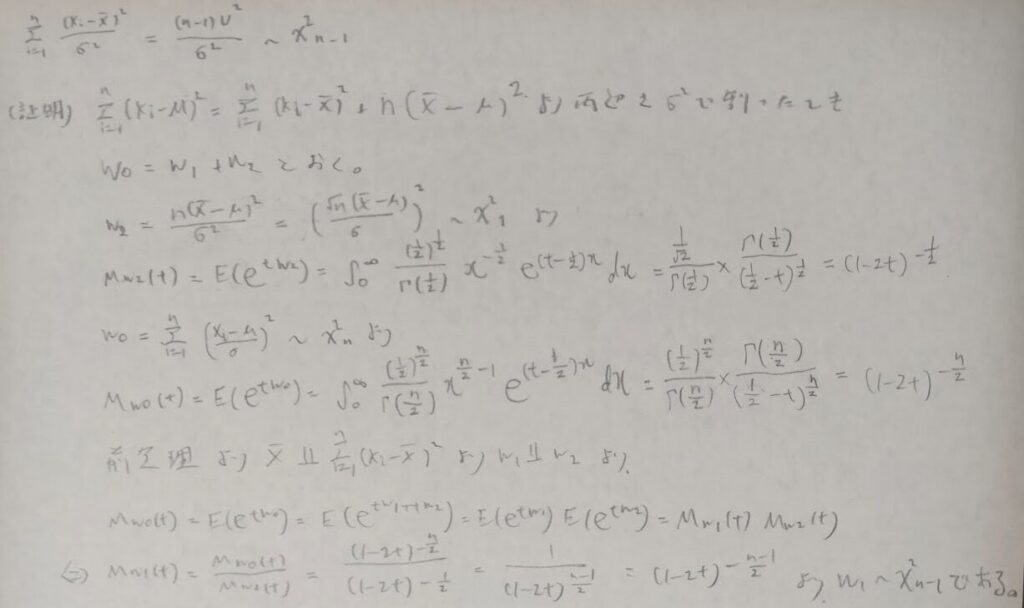 Σ_{i=1}^{n} (xi-x̄)²/σ² = (n-1)U²/σ² ~ χ²_{n-1}
(証明) Σ_{i=1}^{n} (xi-μ)² = Σ_{i=1}^{n} (xi-x̄)² + n(x̄-μ)² より 両辺をσ²で割ったとき
W0 = W1 + W2 とおく。
W2 = n(x̄-μ)²/σ² = (√n(x̄-μ)/σ)² ~ χ²_1 より
Mw2(t) = E(e^{tW2}) = ∫_0^∞ (1/2)^{1/2}/Γ(1/2) x^{-1/2} e^{(t-1/2)x} dx = (1/√2)/Γ(1/2) × Γ(1/2)/(1/2-t)^{1/2} = (1-2t)^{-1/2}
W0 = Σ_{i=1}^{n} ((xi-μ)/σ)² ~ χ²_n より
Mw0(t) = E(e^{tW0}) = ∫_0^∞ (1/2)^{n/2}/Γ(n/2) x^{n/2-1} e^{(t-1/2)x} dx = (1/2)^{n/2}/Γ(n/2) × Γ(n/2)/(1/2-t)^{n/2} = (1-2t)^{-n/2}
定理 より x̄ ⫫ Σ_{i=1}^{n} (xi-x̄)² より W1 ⫫ W2 より、
Mw0(t) = E(e^{tW0}) = E(e^{tW1+tW2}) = E(e^{tW1}) E(e^{tW2}) = Mw1(t) Mw2(t)
⇔ Mw1(t) = Mw0(t)/Mw2(t) = (1-2t)^{-n/2}/(1-2t)^{-1/2} = 1/(1-2t)^{(n-1)/2} = (1-2t)^{-(n-1)/2} より W1 ~ χ²_{n-1} である。